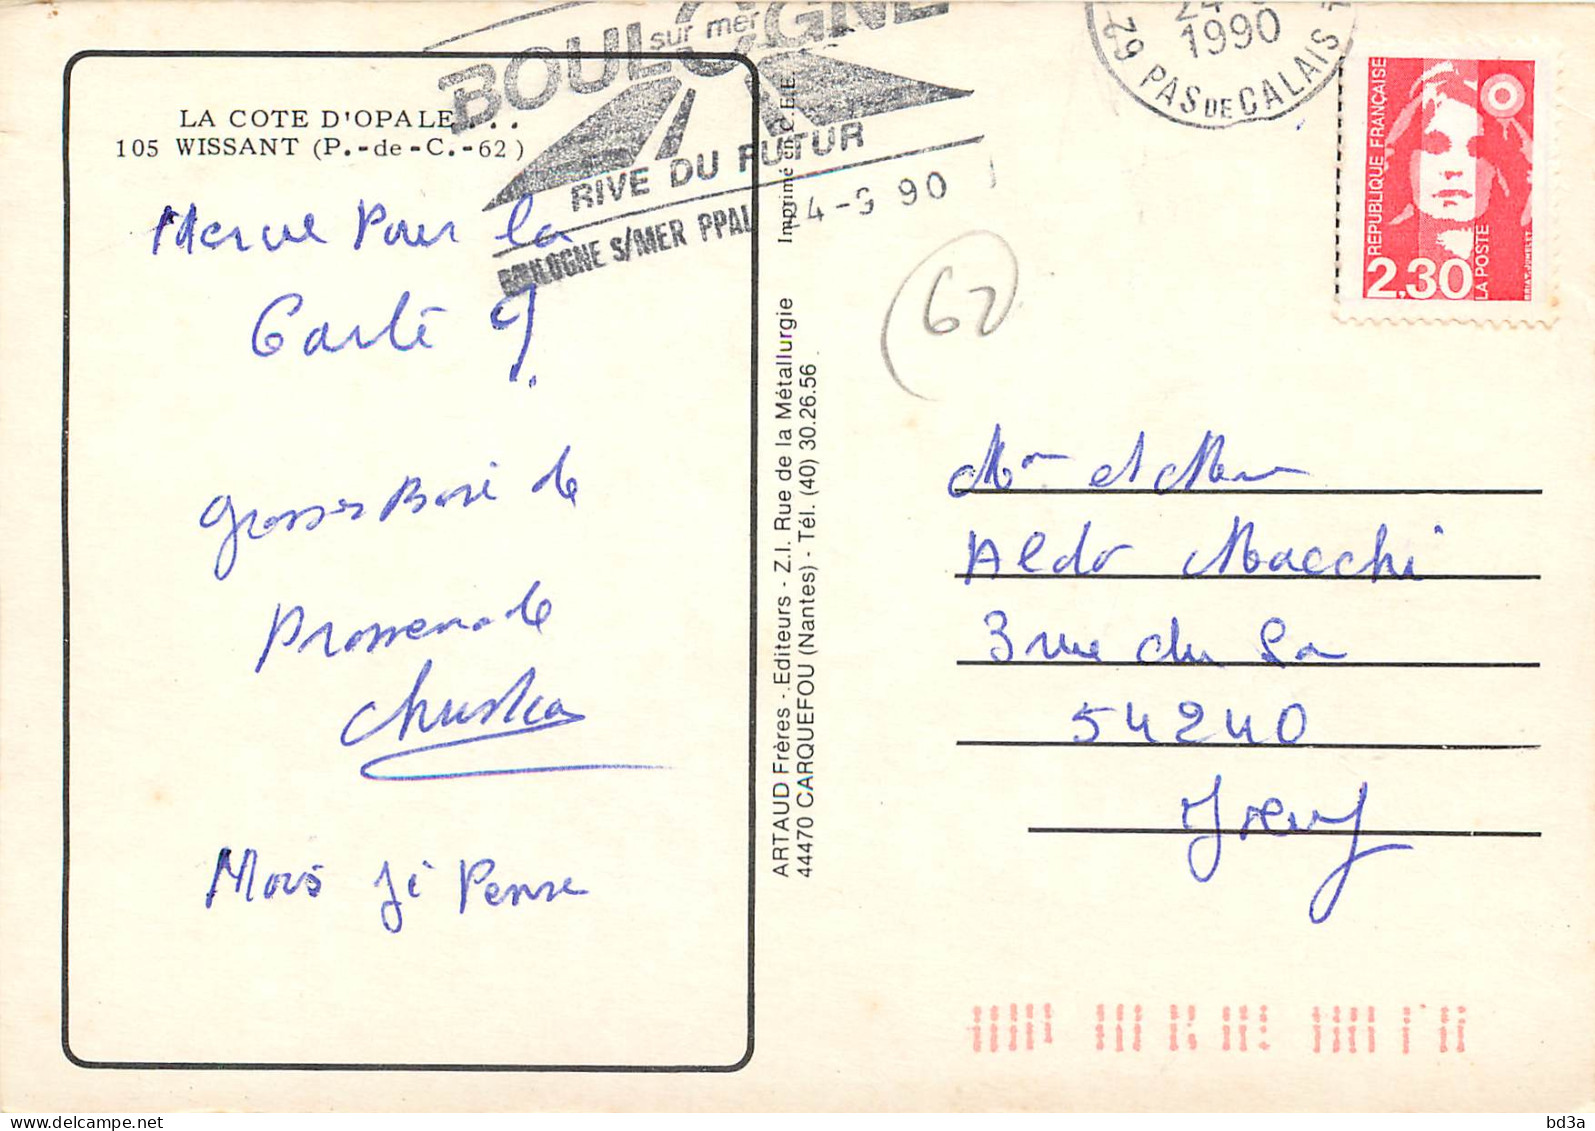 LA COTE D'OPALE...
105 WISSANT (P.-de-C.-62)
BOULOGNE
sur mer
RIVE DU FUTUR
BOULOGNE S/MER PPAL
24-9 90
1990
62 PAS DE CALAIS
REPUBLIQUE FRANÇAISE
2,30
LA POSTE
62
Merci Pour la
Carte
Grosses Bises de
Promenade
Mais Je Pense
Imprimé en C.E.E.
ARTAUD Frères - Editeurs - Z.I. Rue de la Métallurgie
44470 CARQUEFOU (Nantes) - Tél. (40) 30.26.56
Mr et Mme
Aldo Macchi
3 rue du
54240
Joeuf
bd3a